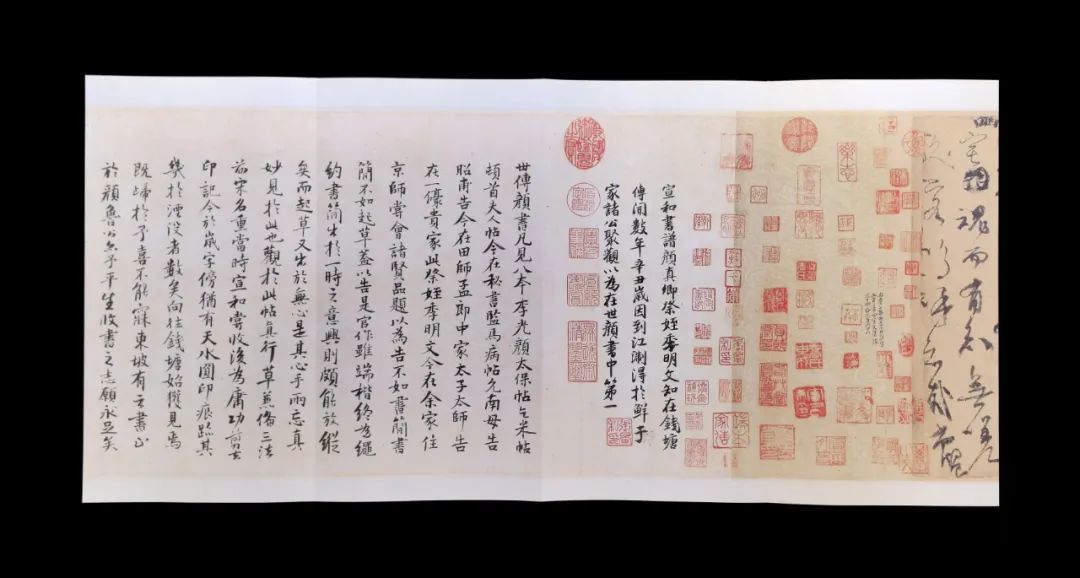 宅魂而有知無嗟
久客嗚呼哀哉尚饗
宣和書譜顏真卿祭姪季明文知在錢塘
傳聞數年辛丑歲因到江淛得於鮮于
家諸公聚觀以為在世顏書中第一
世傳顏書凡見八本李光顏太保帖乞米帖
頓首夫人帖今在秘書監馬病帖允南母告
昭甫告今在田師孟郎中家太子太師告
在一豪貴家此祭姪季明文今在余家住
京師嘗會諸賢品題以為告不如書簡書
簡不如起草蓋以告是官作雖端楷終為繩
約書簡出於一時之意興則頗能放縱
矣而起草又出於無心是其心手兩忘真
妙見於此也觀於此帖真行草兼備三法
前宋名重當時宣和嘗收後為庸功剪去
印記今於歲字傍猶有天水圓印痕跡其
幾於湮沒者數矣向在錢塘始獲見焉
既歸於予喜不能寐東坡有云書止
於顏魯公矣予平生收書之志願永足矣